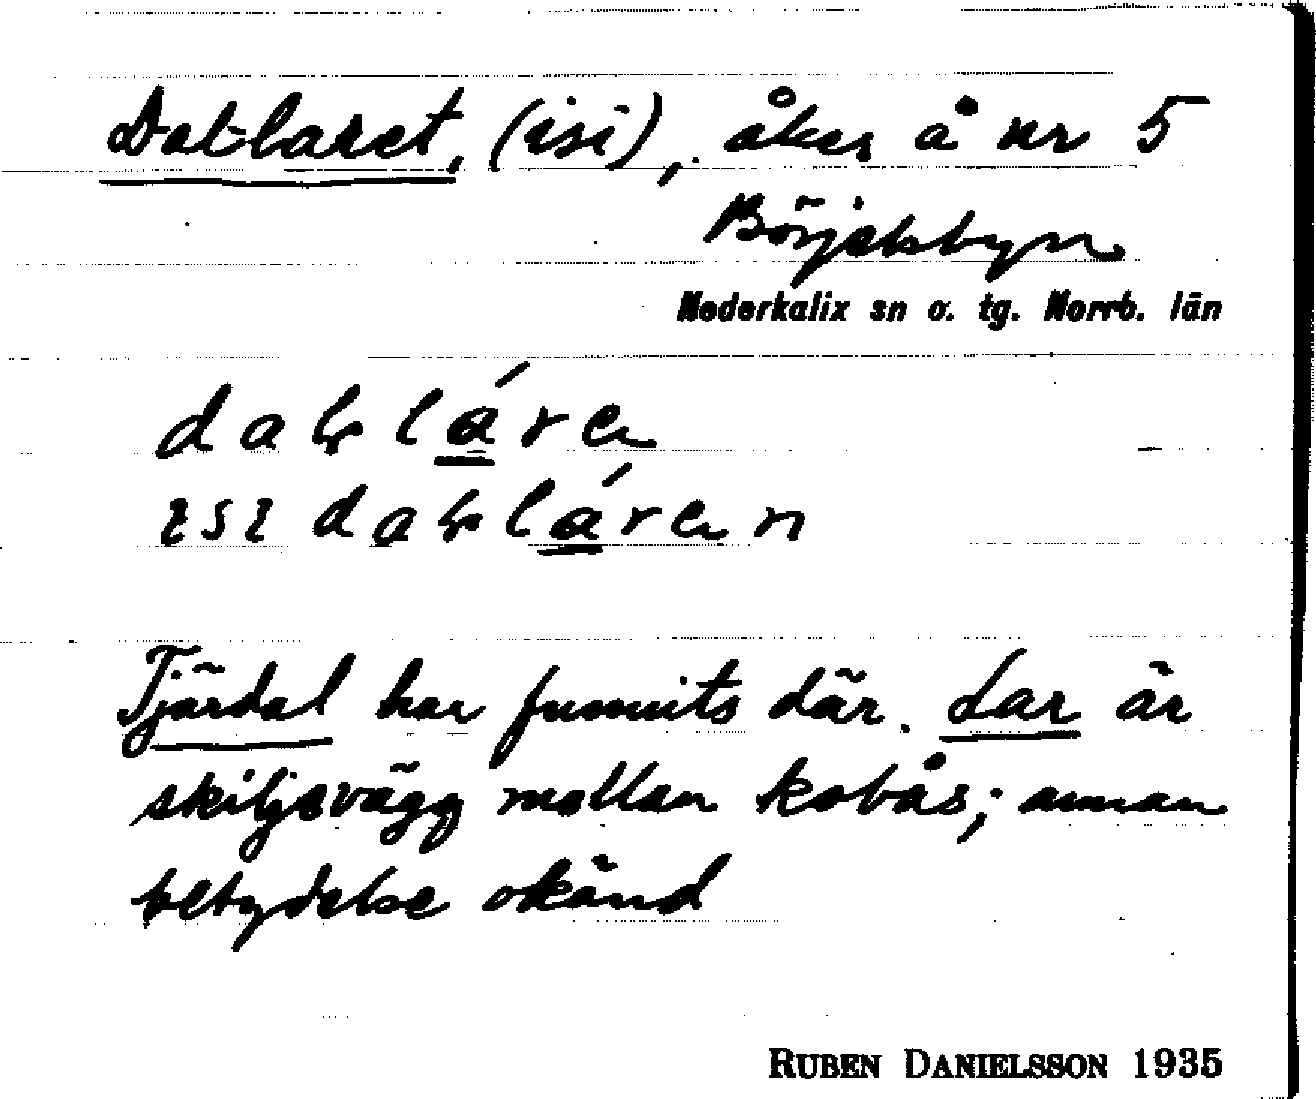 Dallaret, (isi), åker å nr 5
Börjelsbyn
Nederkalix sn o. tg. Norrb. län
Tjärdal har funnits där. Lar är
skiljevägg mellan kobås; annan
betydelse okänd
RUBEN DANIELSSON 1935